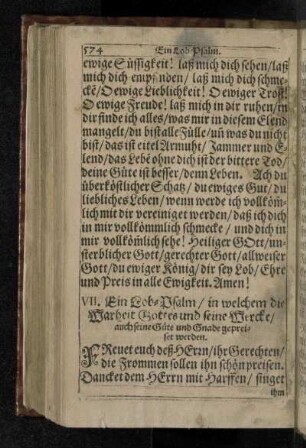 574 Ein Lob-Psalm.
ewige Süssigkeit! laß mich dich sehen/laß
mich dich empfinden/ laß mich dich schme-
ckẽ/O ewige Lieblichkeit! O ewiger Trost!
O ewige Freude! laß mich in dir ruhen/in
dir finde ich alles/was mir in diesem Elend
mangelt/du bist alle Fülle/uñ was du nicht
bist/das ist eitel Armuht/ Jammer und E-
lend/das Lebẽ ohne dich ist der bittere Tod/
deine Güte ist besser/denn Leben. Ach du
überköstlicher Schatz/du ewiges Gut/du
liebliches Leben/wenn werde ich vollkõm-
lich mit dir vereiniget werden/daß ich dich
in mir vollkömmlich schmecke/ und dich in
mir vollkõmlich sehe! Heiliger GOtt/un-
sterblicher Gott/gerechter Gott/allweiser
Gott/du ewiger König/dir sey Lob/Ehre
und Preis in alle Ewigkeit. Amen!
VII. Ein Lob-Psalm/ in welchem die
Warheit Gottes und seine Wercke/
auch seine Güte und Gnade geprei-
set werden.
FReuet euch deß HErrn/ihr Gerechten/
die Frommen sollen ihn schön preisen.
Dancket dem HErrn mit Harffen/ singet
ihm